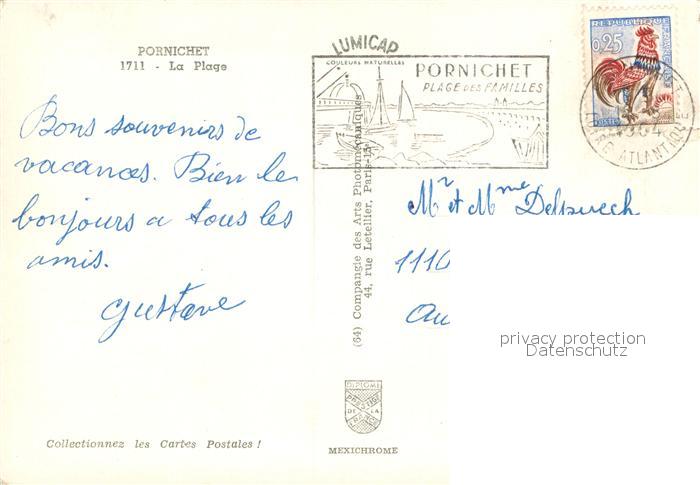 PORNICHET
1711 - La Plage
Bons souvenirs de
vacances. Bien le
bonjours a tous les
amis.
Gustave
Collectionnez les Cartes Postales !
LUMICAP
COULEURS NATURELLES
(64) Compangie des Arts Photomécaniques
44, rue Letellier, Paris-15e
DIPLOME
PRESTIGE
DE LA
FRANCE
MEXICHROME
PORNICHET
PLAGE DES FAMILLES
0,25
POSTES
1964
LOIRE ATLANTIQUE
Mr et Mme Delpuech
1110
Au
privacy protection
Datenschutz